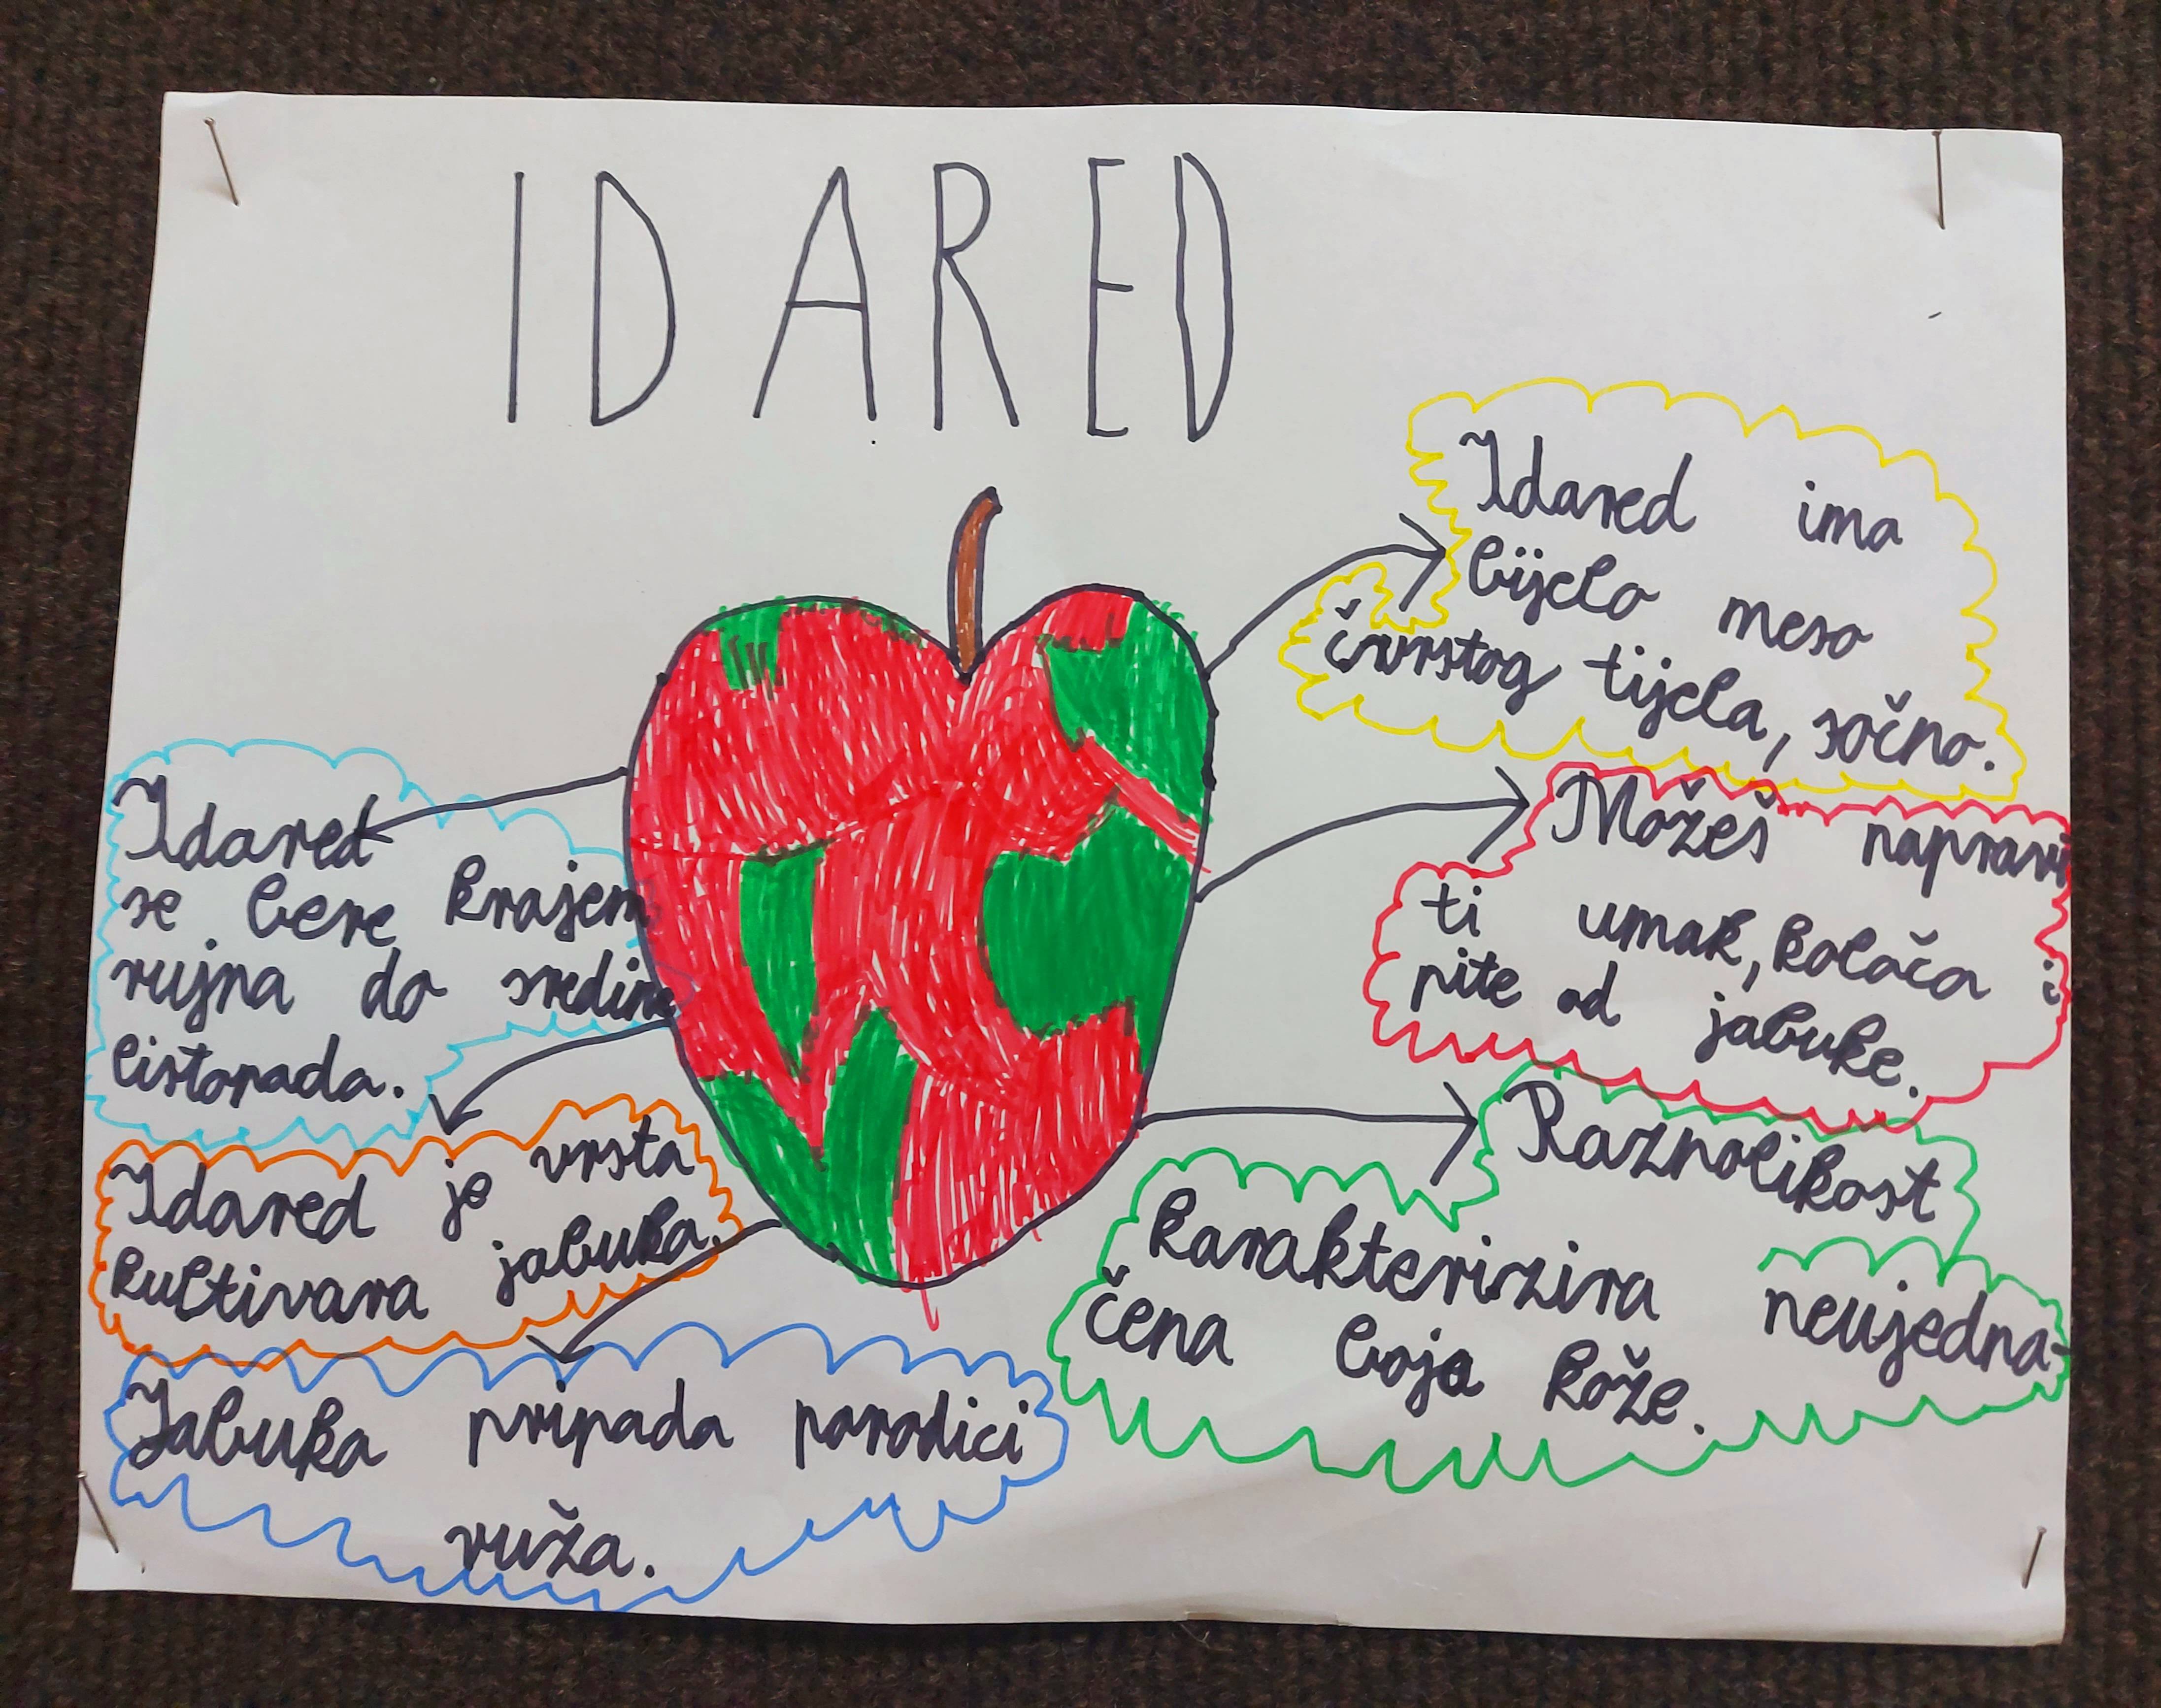 IDARED
Idared ima
bijelo meso
čvrstog tijela, sočno.
Možeš napravi
ti umak, kolača i
pite od jabuke.
Raznolikost
karakterizira neujedna-
čena boja kože.
Idared
se bere krajem
rujna do sredine
listopada.
Idared je vrsta
kultivara jabuka.
Jabuka pripada porodici
ruža.